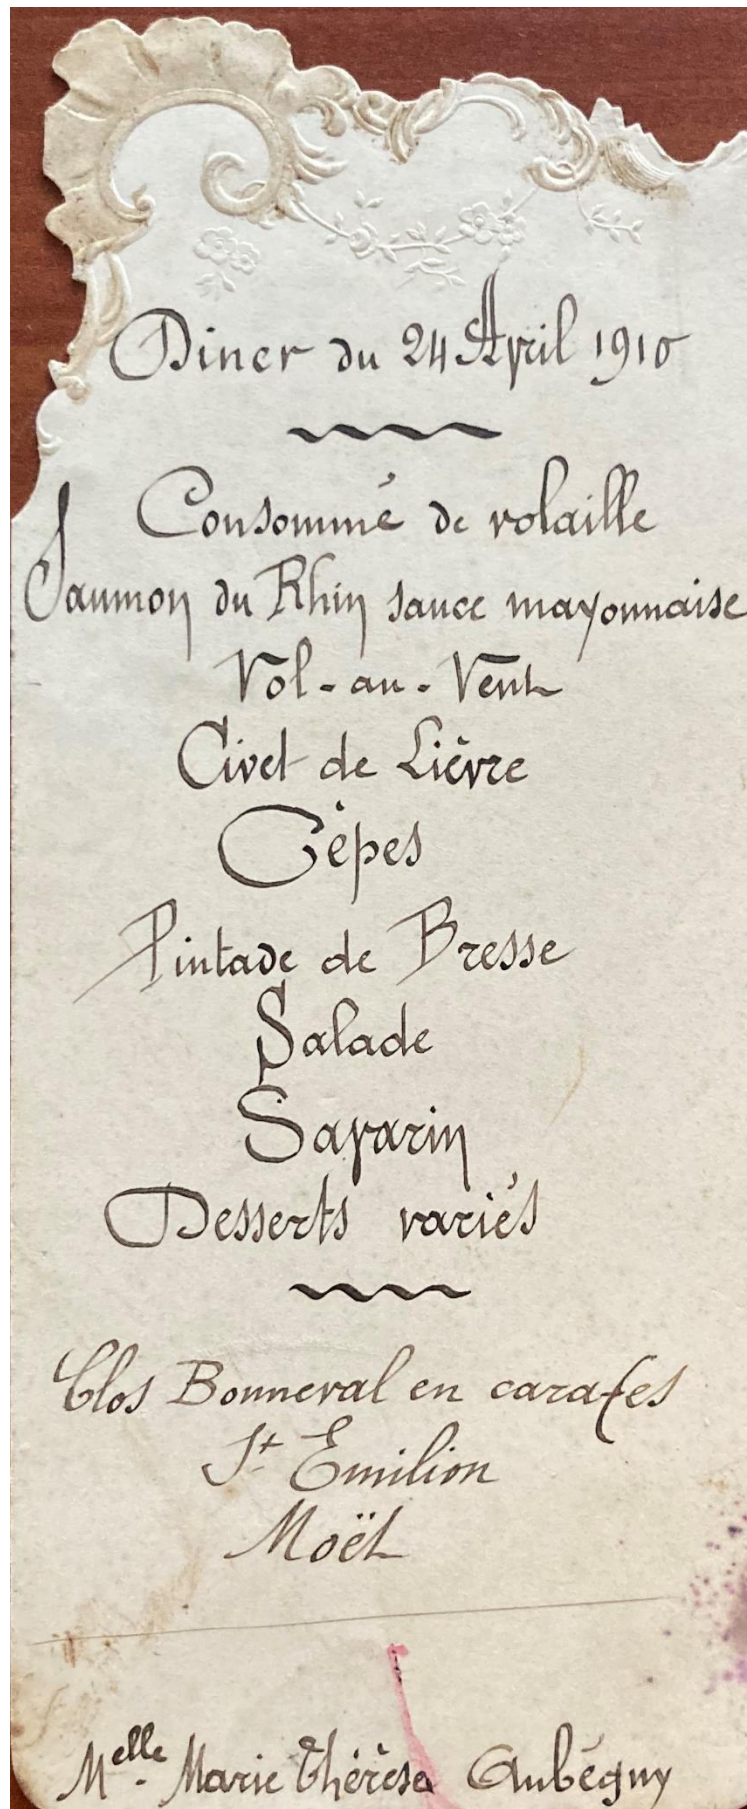 Diner du 24 Avril 1910
Consommé de volaille
Saumon du Rhin sauce mayonnaise
Vol-au-Vent
Civet de Lièvre
Cèpes
Pintade de Bresse
Salade
Savarin
Desserts variés
Clos Bonneval en carafes
St Emilion
Moët
Melle Marie Thérèse Aubégny